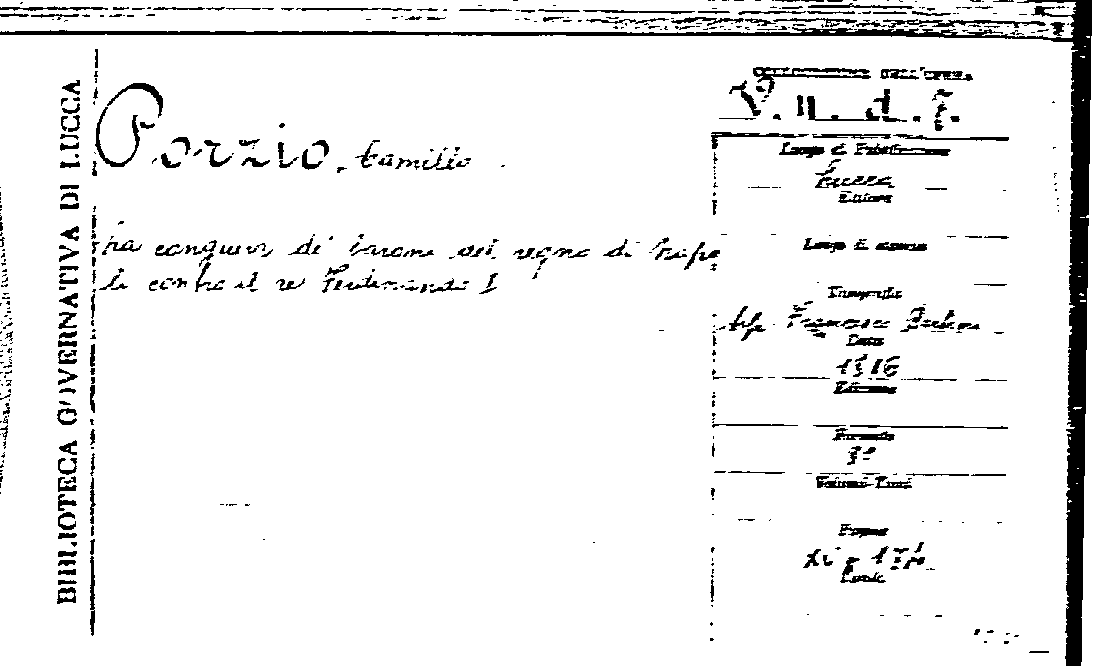 BIBLIOTECA GOVERNATIVA DI LUCCA
Porzio, Camillo
La congiura de' baroni del regno di Napo
li contro il re Ferdinando I
COLLOCAZIONE DELL'OPERA
V. n. d. 7.
Luogo di Pubblicazione
Lucca
Editore
Luogo di stampa
Tipografia
tip. Francesco
Data
1816
Edizione
Formato
8°
Volumi
Pagine